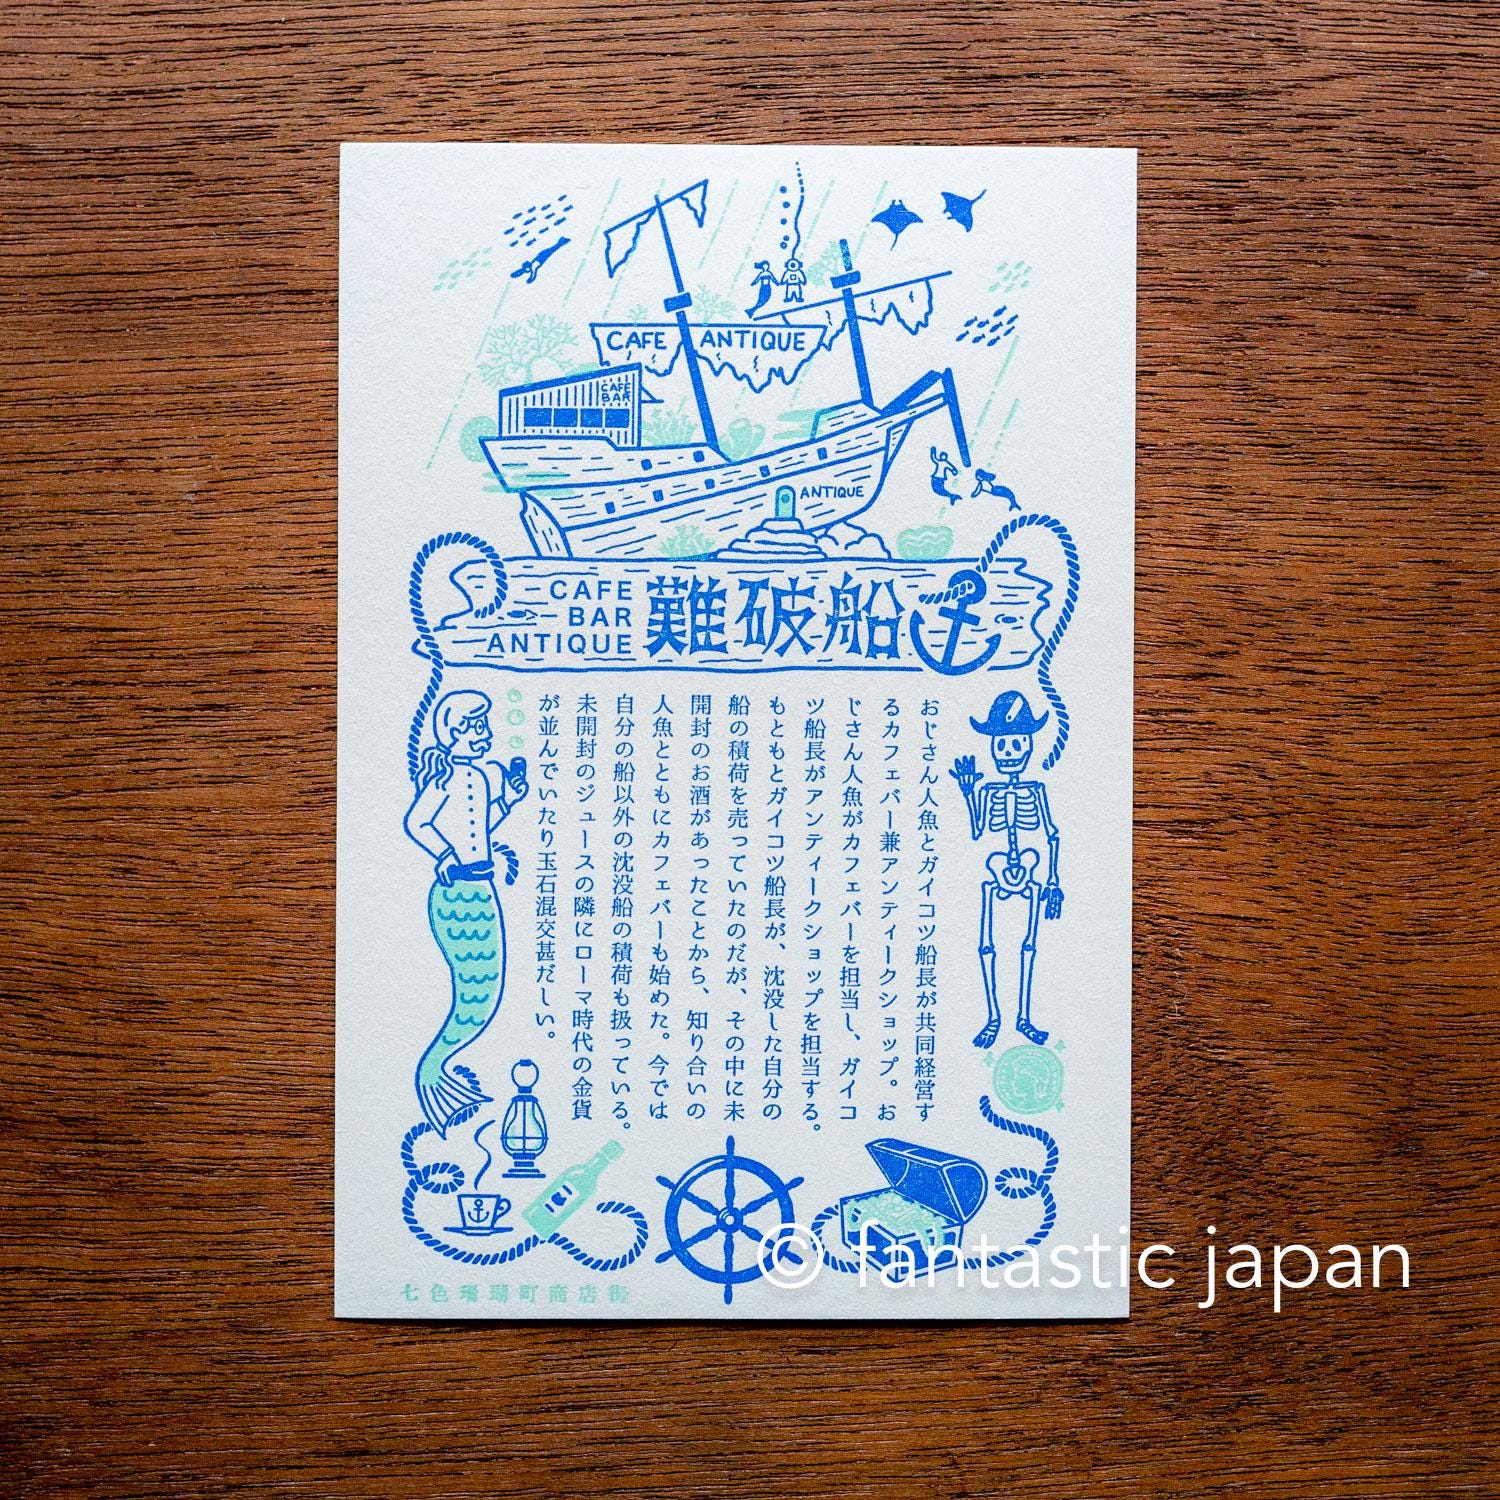 CAFE ANTIQUE
CAFE
BAR
ANTIQUE
CAFE
BAR
ANTIQUE
難破船
おじさん人魚とガイコツ船長が共同経営す
るカフェバー兼アンティークショップ。お
じさん人魚がカフェバーを担当し、ガイコ
ツ船長がアンティークショップを担当する。
もともとガイコツ船長が、沈没した自分の
船の積荷を売っていたのだが、その中に未
開封のお酒があったことから、知り合いの
人魚とともにカフェバーも始めた。今では
自分の船以外の沈没船の積荷も扱っている。
未開封のジュースの隣にローマ時代の金貨
が並んでいたり玉石混交甚だしい。
七色珊瑚町商店街
© fantastic japan